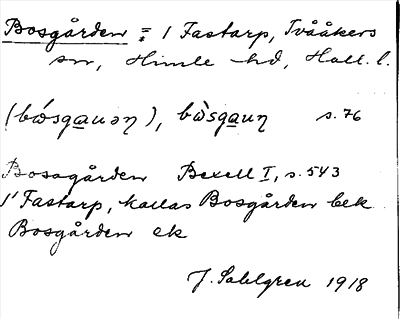 Bosgården = i Fastarp, Tvååkers
sn, Himle hd, Hall. l.
(bὼsgauən), bὼsgaun s. 76
Bosagården Bexell I, s. 543
i Fastarp, kallas Bosgården bek
Bosgården ek
J. Sahlgren 1918